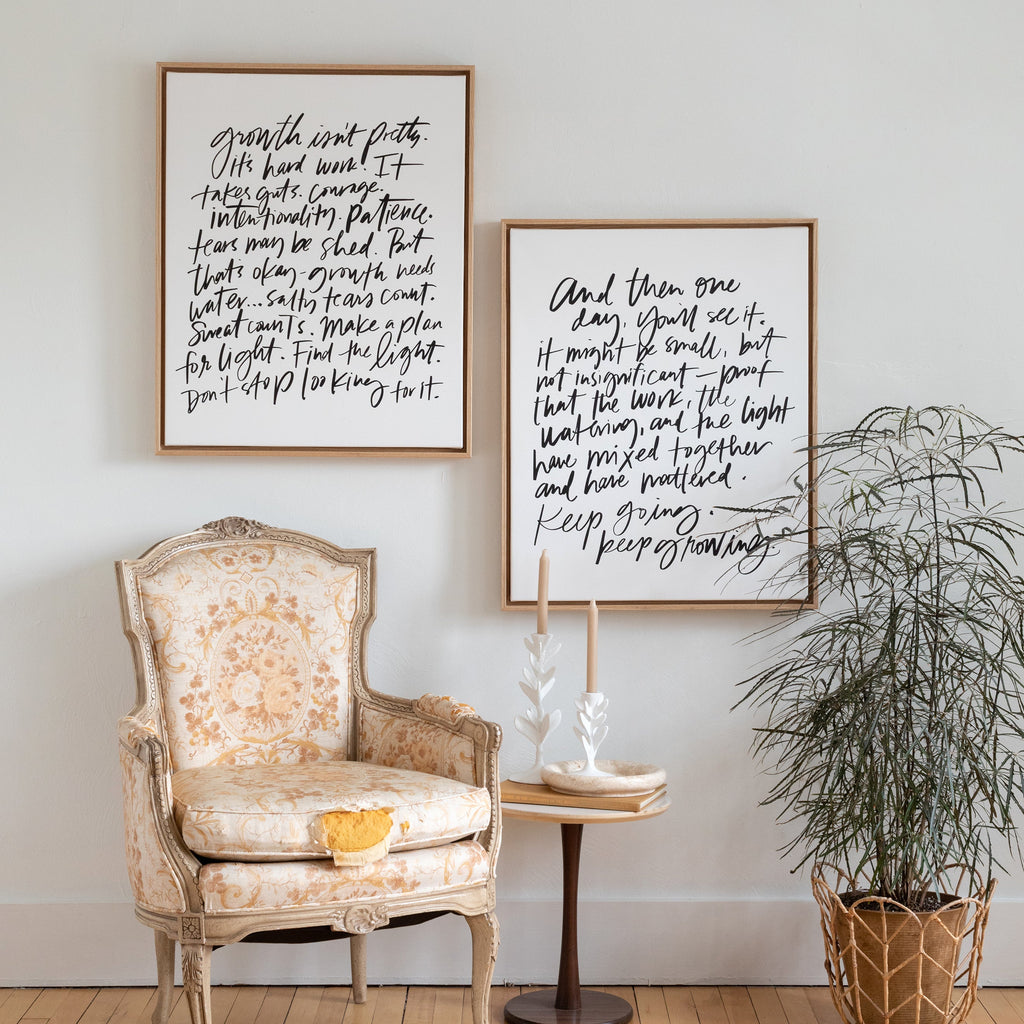 growth isn't pretty.
It's hard work. It
takes guts. Courage.
intentionality. patience.
tears may be shed. But
that's okay-growth needs
water... salty tears count.
Sweat counts. Make a plan
for light. Find the light.
Don't stop looking for it.
And then one
day, you'll see it.
it might be small, but
not insignificant - proof
that the work, the
watering, and the light
have mixed together
and have mattered.
Keep going.
keep growing.